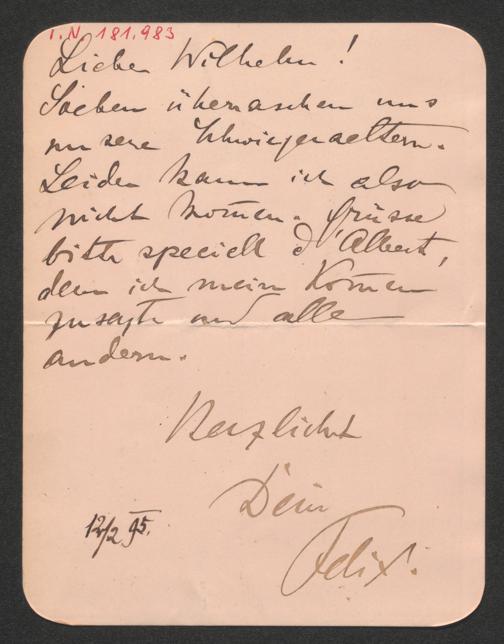 I.N. 181.983
Lieber Wilhelm!
Soeben überraschen uns
unsere Schwiegeraeltern.
Leider kann ich also
nicht kom̄en. Grüsse
bitte speciell d Albert,
dem ich mein Kom̄en
zusagte und alle
andern.
Herzlichst
Dein
Felix.
12/2 95.